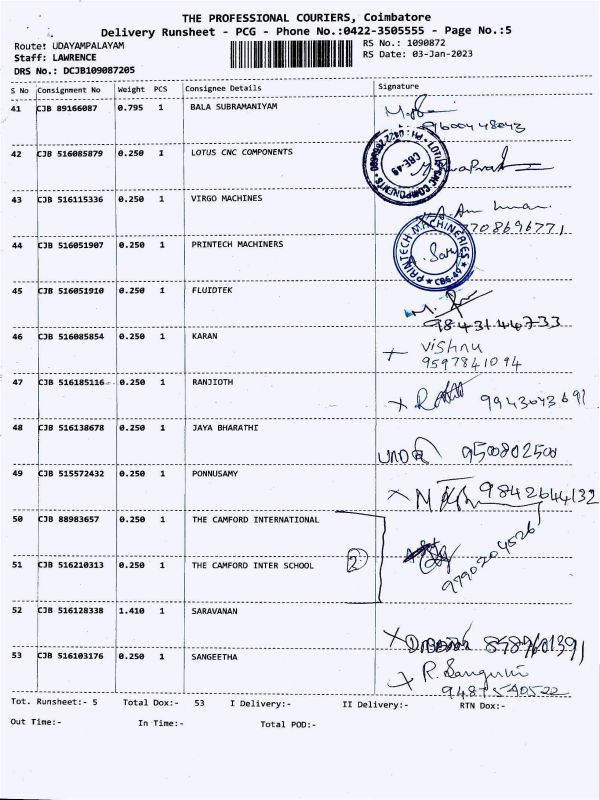 THE PROFESSIONAL COURIERS, Coimbatore
Delivery Runsheet - PCG - Phone No.:0422-3505555 - Page No.:5
Route: UDAYAMPALAYAM
RS No.: 1090872
Staff: LAWRENCE
RS Date: 03-Jan-2023
DRS No.: DCJB109087205
S No Consignment No Weight PCS Consignee Details Signature
41 CJB 89166087 0.795 1 BALA SUBRAMANIYAM
9600448043
42 CJB 516085879 0.250 1 LOTUS CNC COMPONENTS
LOTUS CNC COMPONENTS CBE-49
43 CJB 516115336 0.250 1 VIRGO MACHINES
44 CJB 516051907 0.250 1 PRINTECH MACHINERS
PRINTECH MACHINERIES CBE-49
45 CJB 516051910 0.250 1 FLUIDTEK
46 CJB 516085854 0.250 1 KARAN
Vishnu
9597841094
47 CJB 516185116 0.250 1 RANJIOTH
9943043691
48 CJB 516138678 0.250 1 JAYA BHARATHI
49 CJB 515572432 0.250 1 PONNUSAMY
9842644132
50 CJB 88983657 0.250 1 THE CAMFORD INTERNATIONAL
9790204526
51 CJB 516210313 0.250 1 THE CAMFORD INTER SCHOOL 2
52 CJB 516128338 1.410 1 SARAVANAN
53 CJB 516103176 0.250 1 SANGEETHA
9487540522
Tot. Runsheet:- 5 Total Dox:- 53 I Delivery:- II Delivery:- RTN Dox:-
Out Time:- In Time:- Total POD:-